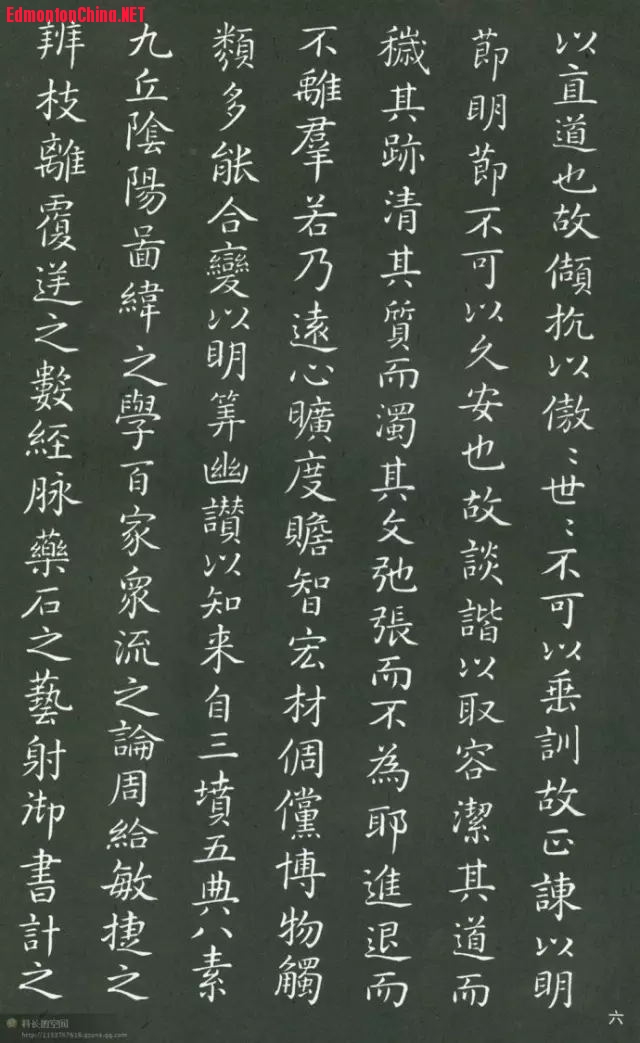 EdmontonChina.NET
以直道也故傾抗以傲〻世〻不可以垂訓故正諫以明
節明節不可以久安也故談諧以取容潔其道而
穢其跡清其質而濁其文弛張而不為耶進退而
不離羣若乃遠心曠度贍智宏材倜儻博物觸
類多能合變以明筭幽讃以知来自三墳五典八素
九丘陰陽啚緯之學百家衆流之論周給敏捷之
辨枝離覆逆之數経脉藥石之藝射御書計之
六
科长的空间